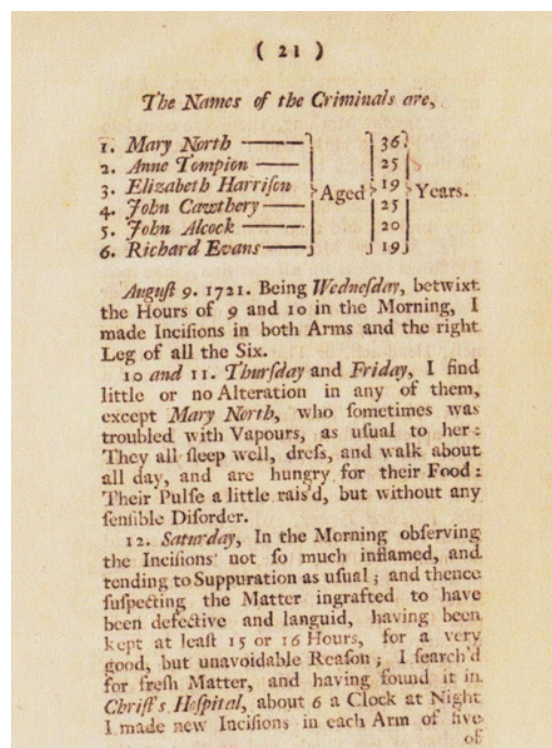 ( 21 )
The Names of the Criminals are,
1. Mary North 36
2. Anne Tompion 25
3. Elizabeth Harriſon Aged 19 Years.
4. John Cawthery 25
5. John Alcock 20
6. Richard Evans 19
Auguſt 9. 1721. Being Wedneſday, betwixt
the Hours of 9 and 10 in the Morning, I
made Inciſions in both Arms and the right
Leg of all the Six.
10 and 11. Thurſday and Friday, I find
little or no Alteration in any of them,
except Mary North, who ſometimes was
troubled with Vapours, as uſual to her:
They all ſleep well, dreſs, and walk about
all day, and are hungry for their Food:
Their Pulſe a little rais'd, but without any
ſenſible Diſorder.
12. Saturday, In the Morning obſerving
the Inciſions not ſo much inflamed, and
tending to Suppuration as uſual; and thence
ſuſpecting the Matter ingrafted to have
been defective and languid, having been
kept at leaſt 15 or 16 Hours, for a very
good, but unavoidable Reaſon; I ſearch'd
for freſh Matter, and having found it in
Chriſt's Hoſpital, about 6 a Clock at Night
I made new Inciſions in each Arm of five
of